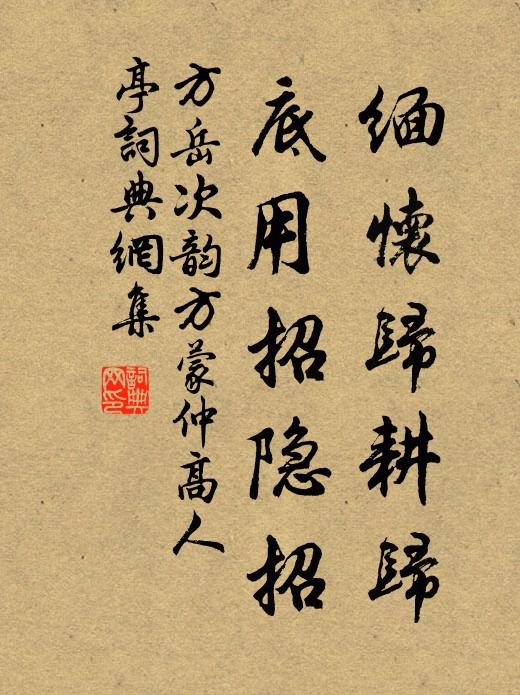 缅懷歸耕歸
底用招隐招
方岳次韵方蒙仲高人
亭詞典網集
詞典网印